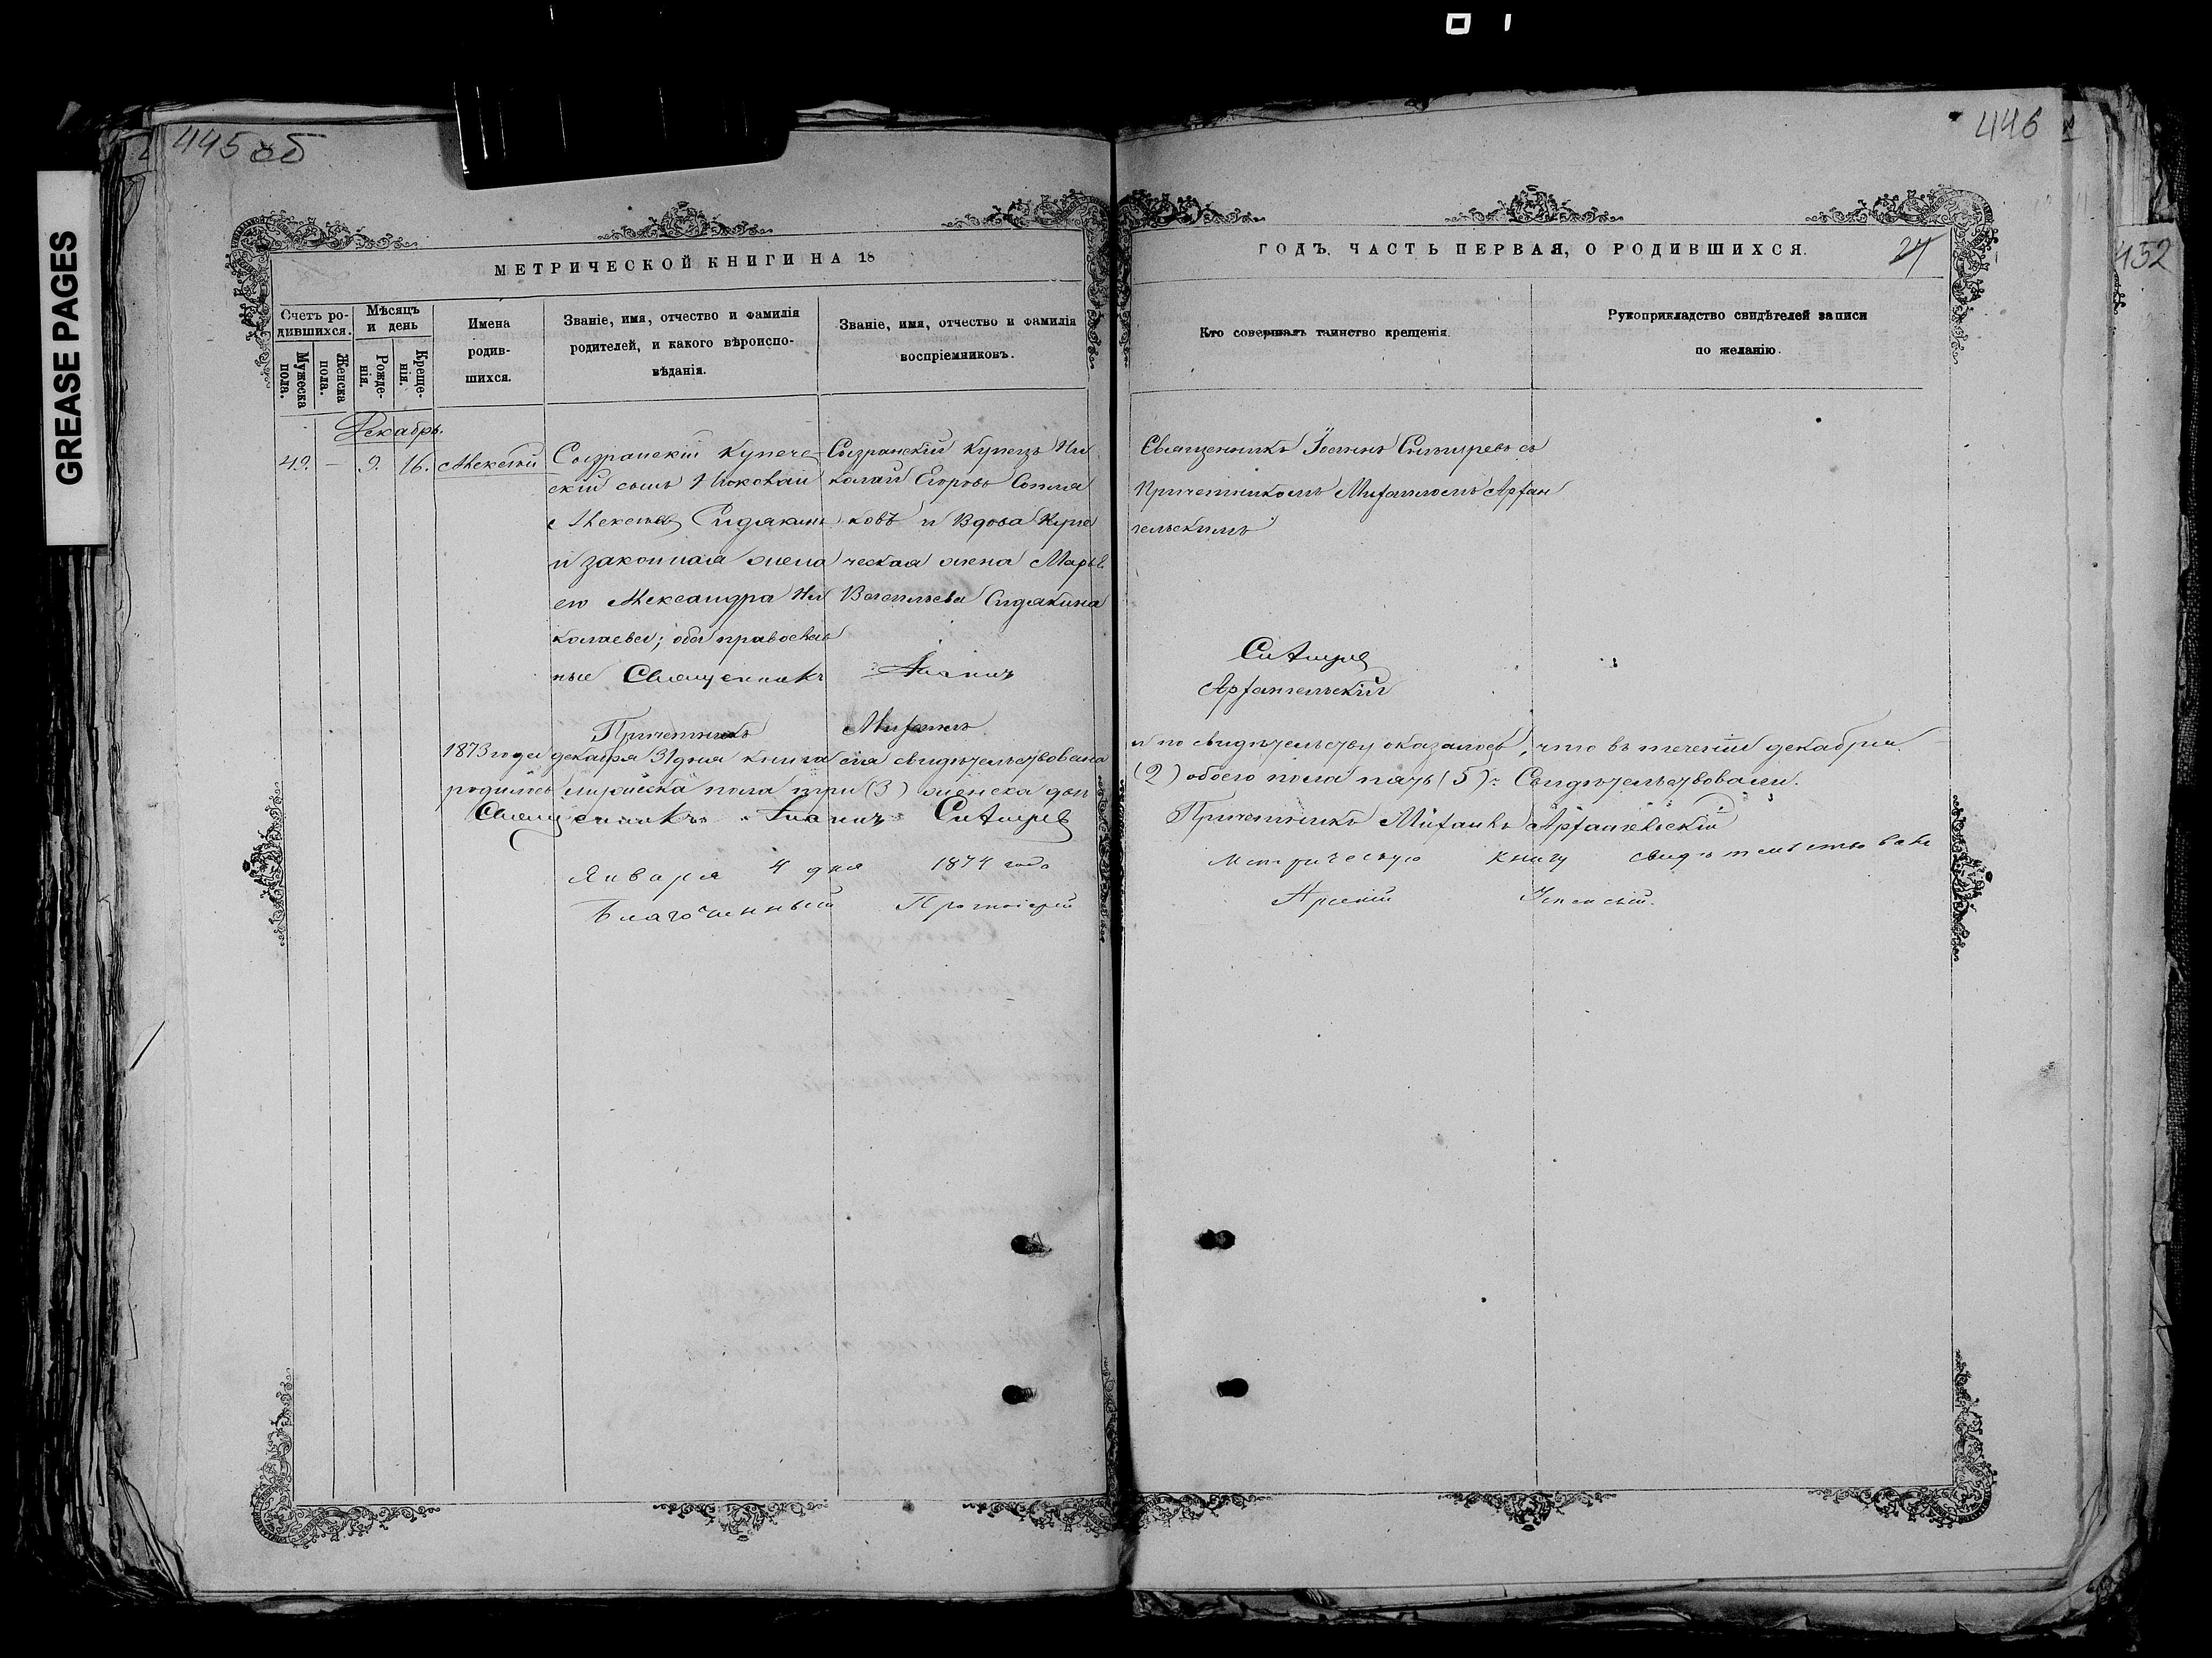 445 об
446
GREASE PAGES
432
МЕТРИЧЕСКОЙ КНИГИ НА 18
ГОДЪ, ЧАСТЬ ПЕРВАЯ, О РОДИВШИХСЯ.
24
Счетъ ро-
дившихся.
Мужеска
пола.
Женска
пола.
Мѣсяцъ
и день
Рожде-
нія.
Креще-
нія.
Имена
родив-
шихся.
Званіе, имя, отчество и фамилія
родителей, и какого вѣроиспо-
вѣданія.
Званіе, имя, отчество и фамилія
воспріемниковъ.
Кто совершалъ таинство крещенія.
Рукоприкладство свидѣтелей записи
по желанію.
Декабрь.
49. — 9. 16. Алексѣй
Сызранскій купече-
скій сынъ Николай
Алексѣевъ Сидякинъ
и законная жена
его Александра Ни
колаева; оба православ
ные
Сызранскій Купецъ Ни
колай Егоровъ
ковъ и Вдова Купе
ческая жена Марья
Васильева Сидякина
Священникъ Іоаннъ Снѣгиревъ съ
Причетникомъ Михаиломъ Архан
гельскимъ
Священникъ Іоаннъ Снѣгирев
Причетникъ Михаилъ Архангельскій
1873 года декабря 31 дня книга сія свидѣтельствована и по свидѣтельству оказалось, что въ теченіи декабря
родилось мужеска пола три (3) женска двѣ (2) обоего пола пять (5). Свидѣтельствовали.
Священникъ Іоаннъ Снѣгирев Причетникъ Михаилъ Архангельскій
Января 4 дня 1874 года Метрическую книгу свидѣтельствовалъ
Благочинный Протоіерей Арсеній